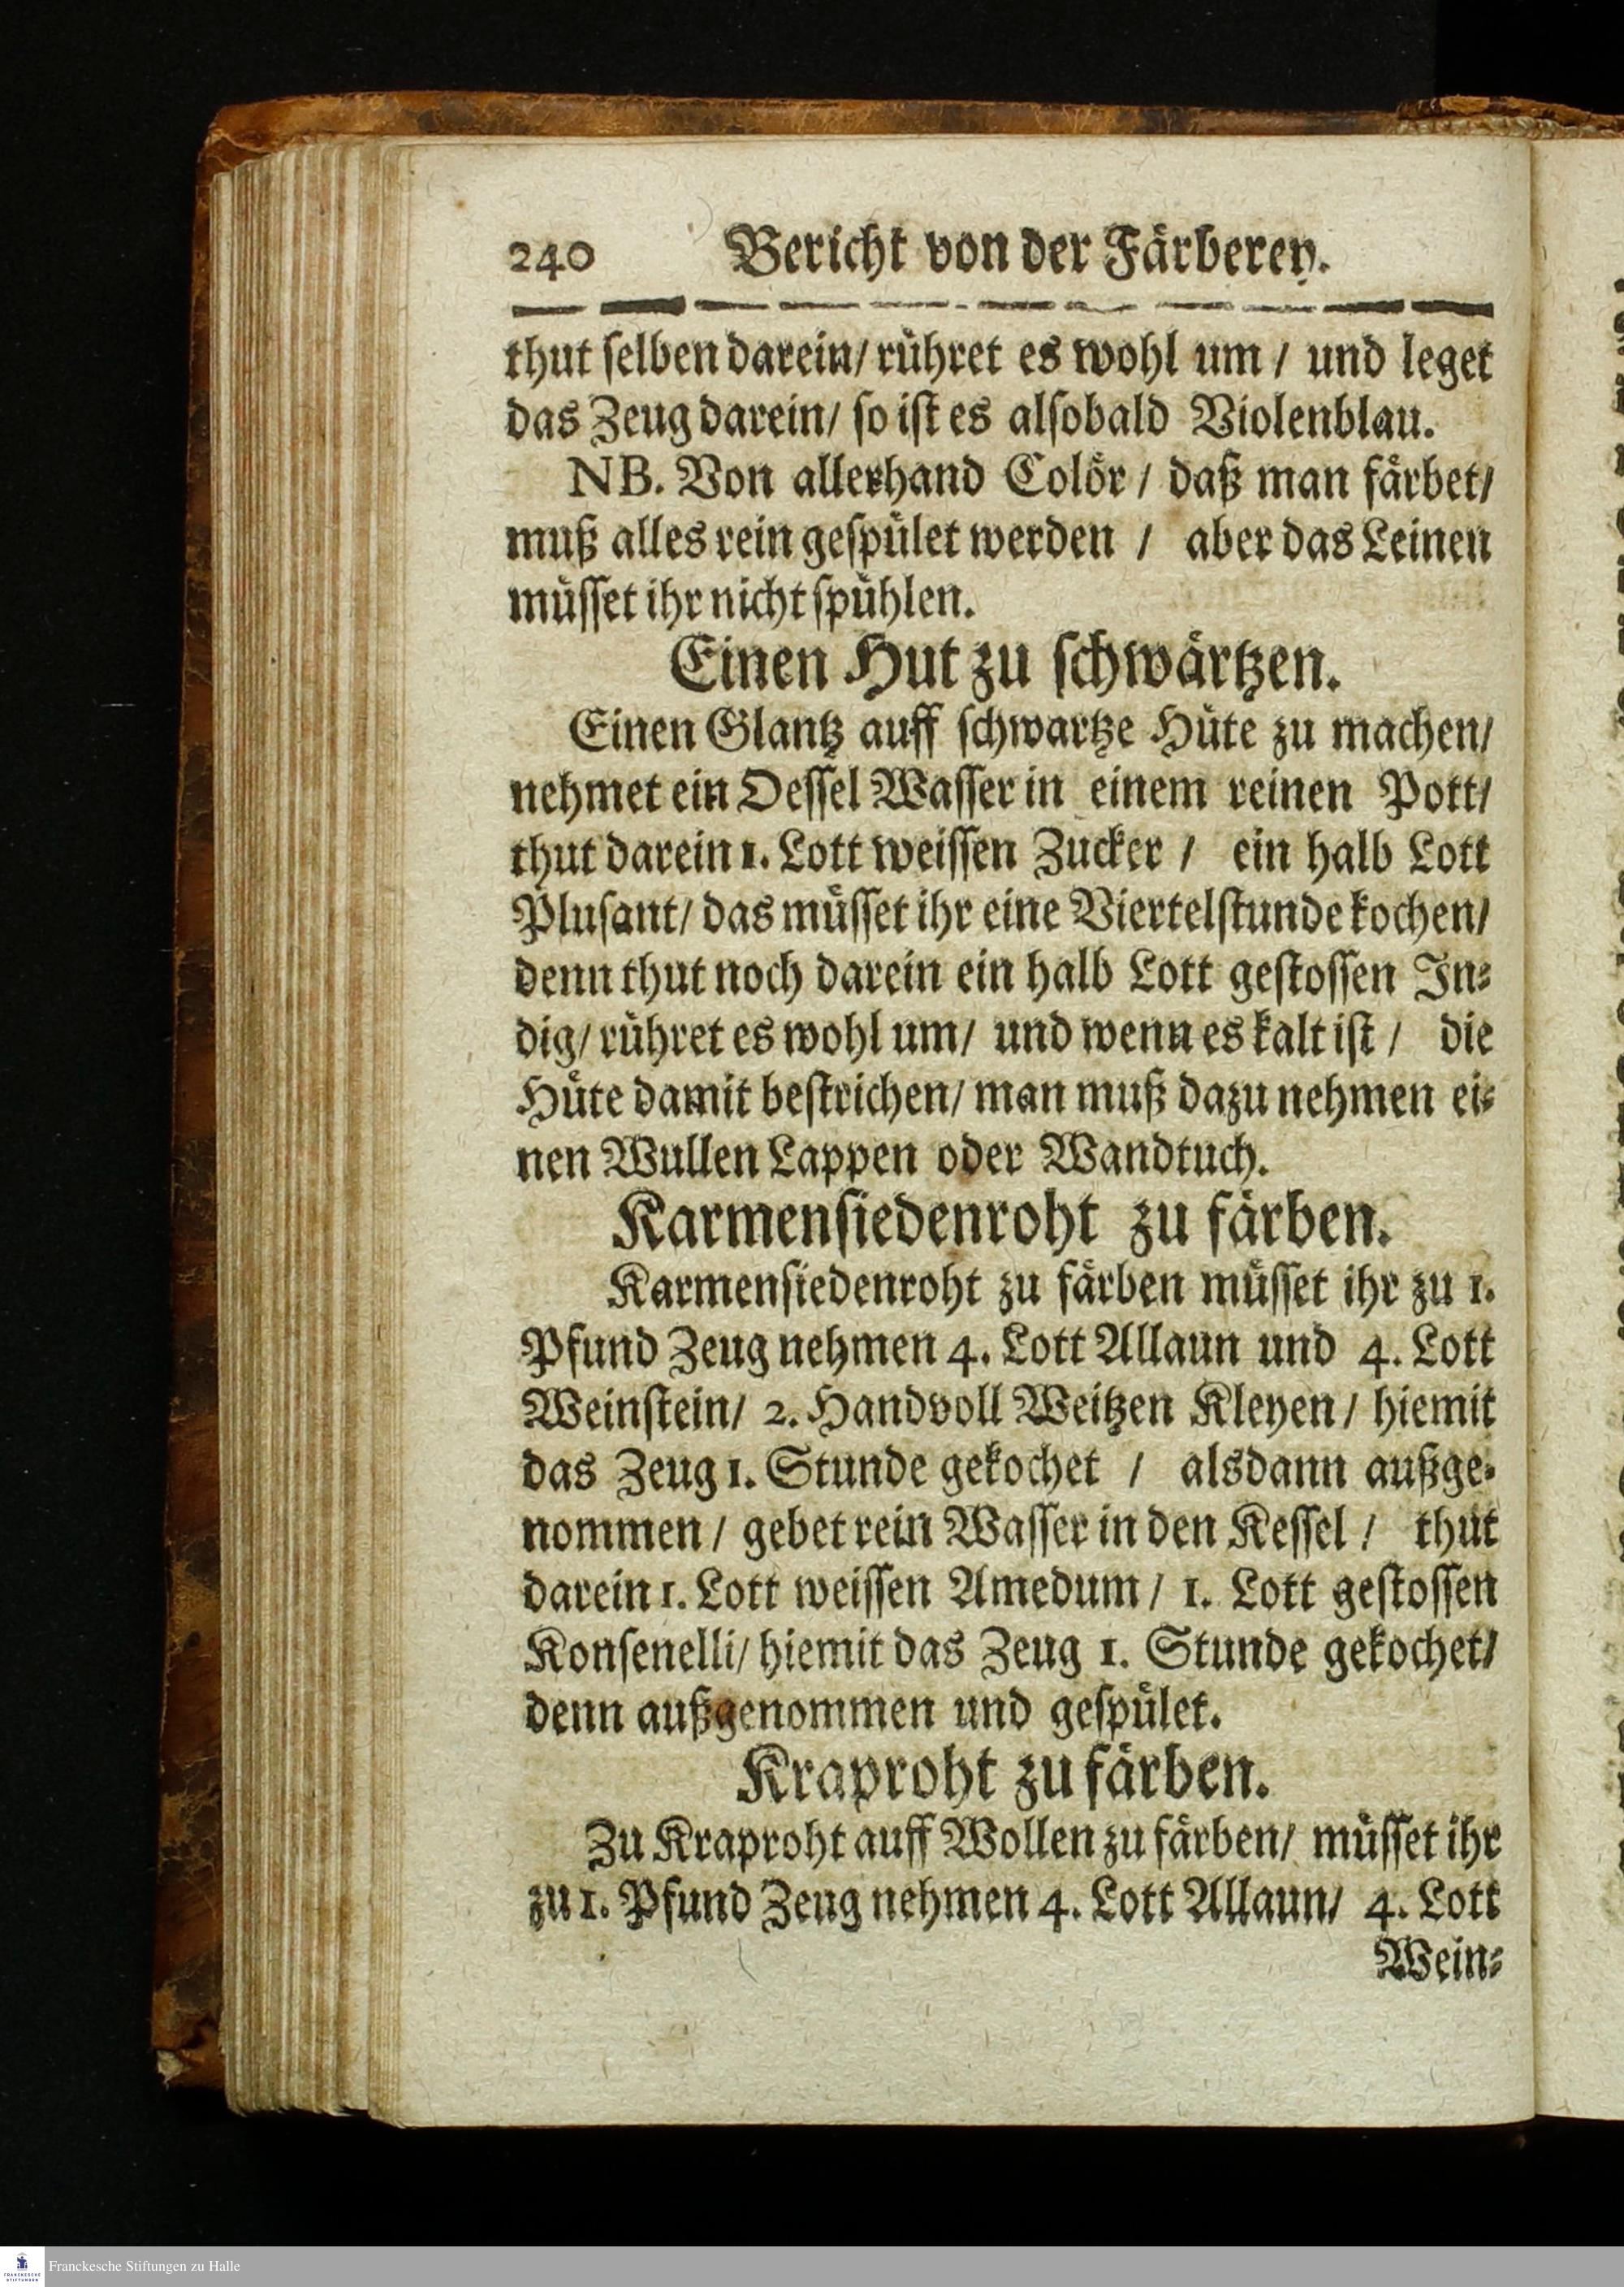 240 Bericht von der Färberey.
thut ſelben darein/ rühret es wohl um / und leget
das Zeug darein/ ſo iſt es alſobald Violenblau.
NB. Von allerhand Colör / daß man färbet/
muß alles rein geſpület werden / aber das Leinen
müſſet ihr nicht ſpühlen.
Einen Hut zu ſchwärtzen.
Einen Glantz auff ſchwartze Hüte zu machen/
nehmet ein Oeſſel Waſſer in einem reinen Pott/
thut darein 1. Lott weiſſen Zucker / ein halb Lott
Pluſant/ das müſſet ihr eine Viertelſtunde kochen/
denn thut noch darein ein halb Lott geſtoſſen In⸗
dig/ rühret es wohl um/ und wenn es kalt iſt / die
Hüte damit beſtrichen/ man muß dazu nehmen ei⸗
nen Wullen Lappen oder Wandtuch.
Karmenſiedenroht zu färben.
Karmenſiedenroht zu färben müſſet ihr zu 1.
Pfund Zeug nehmen 4. Lott Allaun und 4. Lott
Weinſtein/ 2. Handvoll Weitzen Kleyen / hiemit
das Zeug 1. Stunde gekochet / alsdann außge⸗
nommen / gebet rein Waſſer in den Keſſel / thut
darein 1. Lott weiſſen Amedum / 1. Lott geſtoſſen
Konſenelli/ hiemit das Zeug 1. Stunde gekochet/
denn außgenommen und geſpület.
Kraproht zu färben.
Zu Kraproht auff Wollen zu färben/ müſſet ihr
zu 1. Pfund Zeug nehmen 4. Lott Allaun/ 4. Lott
Wein⸗
Franckesche Stiftungen zu Halle
FRANCKESCHE
STIFTUNGEN